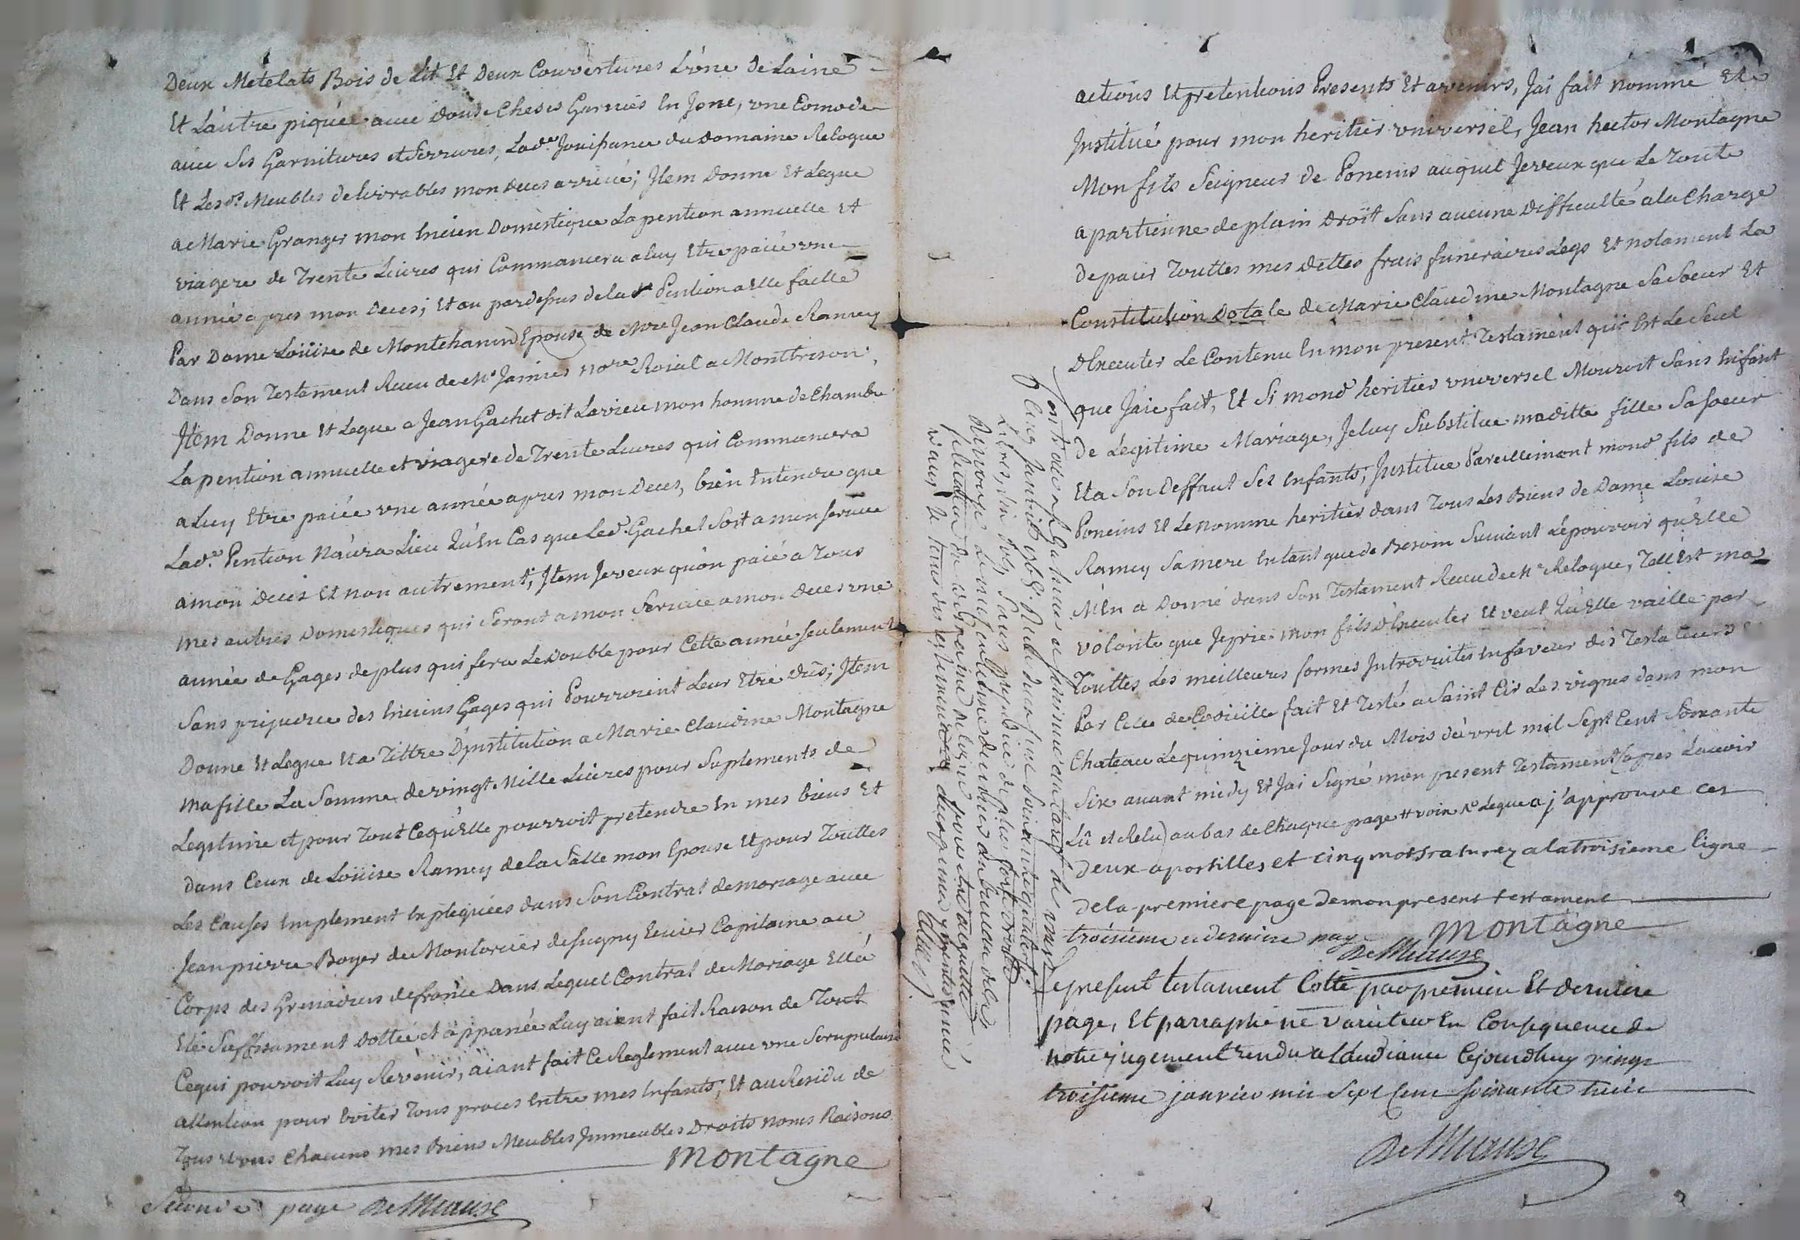 Deux Metelats Bois de Lit Et Deux Couvertures L'une de Laine
Et L'autre piquée avec Douse Cheses Garnies En Jonc, une Comode
avec Ses Garnitures et Serrures, Lad.e Jouissance du Domaine Relogue
Et Lesd.s Meubles delivrables mon Deces arrivé; Item Donne Et Legue
a Marie Granger mon Encien Domestique La pention annuelle Et
viagere de Trente Livres qui Commancera a luy Etre paiée une
année apres mon Deces; Et au pardessus de la Pention a Elle faitte
Par Dame Loüise de Montchanin Epouse de Mre Jean Claude Ramey
Dans Son Testament Receu de Me Jamier nore Roial a Montbrison;
Item Donne Et Legue a Jean Gachet dit Lavieu mon homme de Chambre
La pention annuelle et viagere de Trente Livres qui Commancera
a Luy Etre paiée une année apres mon Deces, bien Entendre que
Lad.e Pention N'aura Lieu Qu'En Cas que Led. Gachet Soit a mon Service
a mon Deces Et non autrement; Item Je veux qu'on paie a Tous
mes autres Domestiques qui Seront a mon Service a mon Deces une
année de Gages de plus qui fera Le Double pour Cette année Seulement
Sans prejudice des Enciens Gages qui Pourroient Leur Etre Dûs; Item
Donne Et Legue Et a Tittre D'institution a Marie Claudine Montagne
ma fille La Somme de vingt Mille Livres pour Suplements de
Legitime et pour Tout Ce qu'Elle pourroit pretendre En mes biens Et
Dans Ceux de Loüise Ramey de la Salle mon Epouse Et pour Touttes
Les Causes Emplement Expliquées dans Son Contrat de mariage avec
Jean pierre Boyer du Montorcier de Sugny Ecuier Capitaine au
Corps des Grenadiers de france Dans Lequel Contrat de Mariage Elle a
Eté Suffisament Dottée et appanée Luy aiant fait Raison de Tout
Ce qui pouvoit Luy Revenir, aiant fait Ce Reglement avec une Scrupuleuse
attention pour Eviter Tous proces Entre mes Enfants; Et au Residu de
Tous Et uns Chacuns mes Biens Meubles Immeubles Droits noms Raisons
Montagne
Seconde page DeMeaux
actions Et pretentions Presents Et avenirs, J'ai fait nommé Et
Institué pour mon heritier universel, Jean hector Montagne
Mon fils Seigneur de Poncins auquel Je veux que Le Toutte
apartienne de plain Droit Sans aucune Difficulté a la Charge
De paier Touttes mes dettes frais funeraires Legs Et notament La
Constitution Dotale de Marie Claudine Montagne Sa Soeur Et
D'Executer Le Contenu En mon present Testament qui Est Le Seul
que J'aie fait, Et Si mond.t heritier universel Mouroit Sans Enfant
De Legitime Mariage, Je luy Substitue maditte fille Sa soeur
Et a Son Deffaut Ses Enfants; Institue Pareillement mond.t fils de
Poncins Et Le nomme heritier dans Tous Les Biens de Dame Louise
Ramey Sa mere En tant que de Besoin Suivant Le pouvoir qu'Elle
M'En a Donné dans Son Testament Receu de Me Relogue, Telle Est ma
volonté que Je prie mon fils d'Executer Et veut Qu'Elle vaille par
Touttes Les meilleures formes Introduites En faveur des Testateurs
Par Celle de Codicille fait Et Testé a Saint Cir Les vignes dans mon
Chateau Le quinzieme Jour du Mois d'avril mil Sept Cent Soixante
Six avant midy Et J'ai Signé mon present Testament apres L'avoir
Lû et Relu au bas de Chaque page j'approuve ces
Deux apostilles et cinq mots raturez a la troisieme ligne
De la premiere page de mon present testament
Montagne
troisieme et derniere page DeMeaux
Le present testament Cotté par premiere Et derniere
page, Et parraphé ne varietur En Consequence de
notre jugement rendu a l'audiance Cejourdhuy vingt
troisieme janvier mil Sept Cent soixante treize
DeMeaux